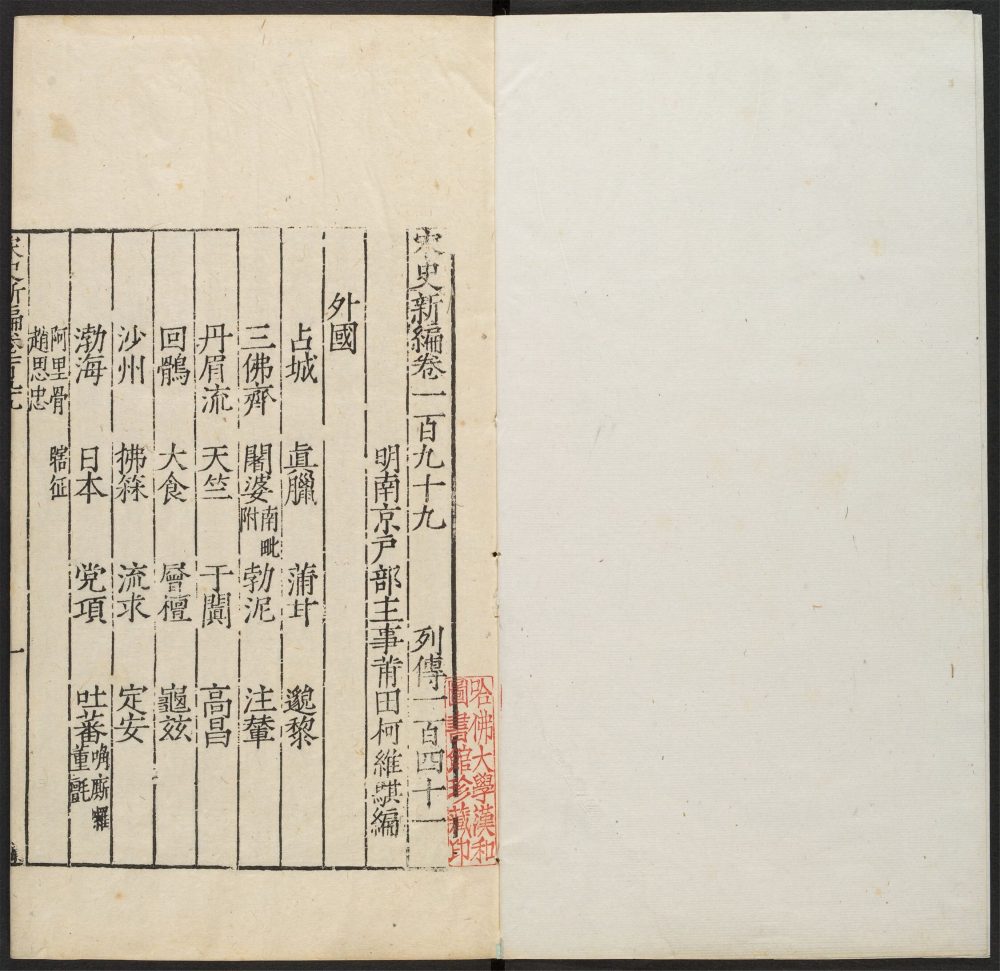 宋史新編卷一百九十九 列傳一百四十一
明南京戸部主事莆田柯維騏編
外國
占城 眞臘 蒲甘 邈黎
三佛齊 闍婆南毗附 勃泥 注輦
丹眉流 天竺 于闐 高昌
回鶻 大食 層檀 龜玆
沙州 拂菻 流求 定安
渤海 日本 党項 吐蕃唃廝囉 董氊
阿里骨 瞎征
趙思忠
宋史新編卷一百九十九
一
哈佛大學漢和
圖書館珍藏印